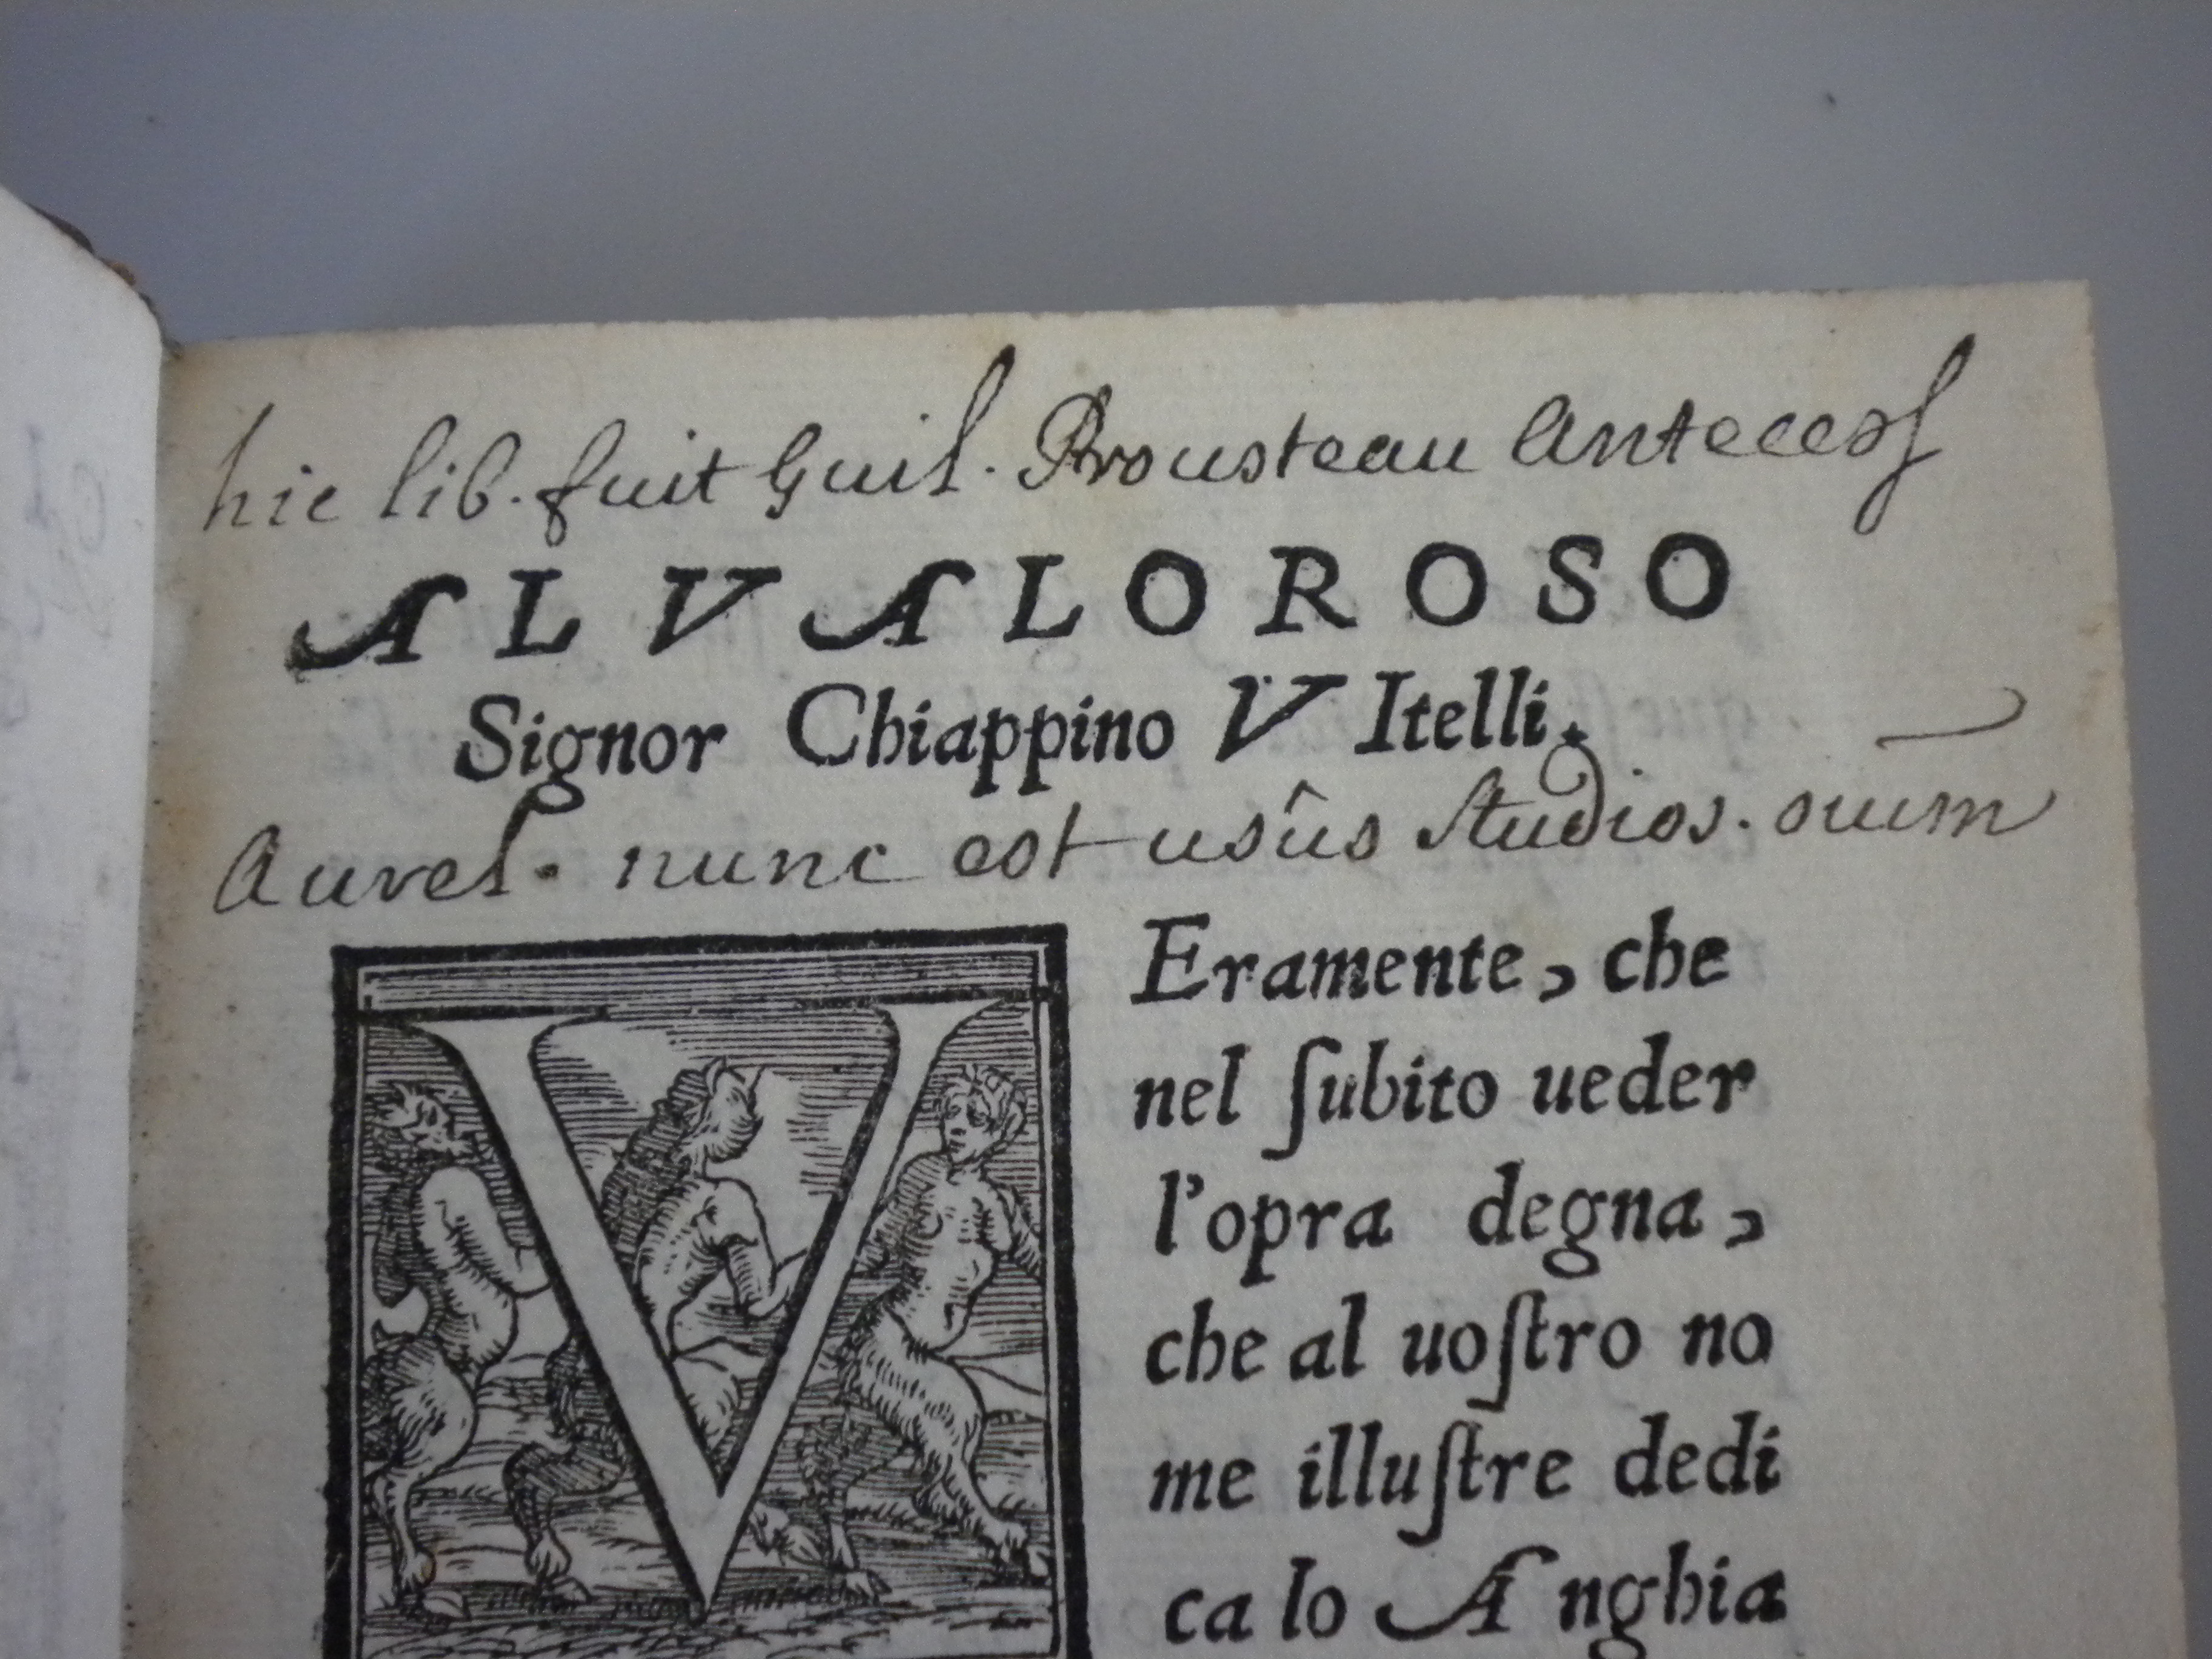 hic lib. fuit Guil. Prousteau Antecess
AL VALOROSO
Signor Chiappino VItelli.
Aurel. nunc est usûs Studios. ouim
V
Eramente, che
nel ſubito ueder
l'opra degna,
che al uoſtro no
me illuſtre dedi
ca lo Anghia